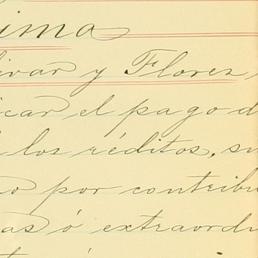 ima
ivar y Florez
icar el pago d
los réditos, su
o por contribu
as ó extraordi